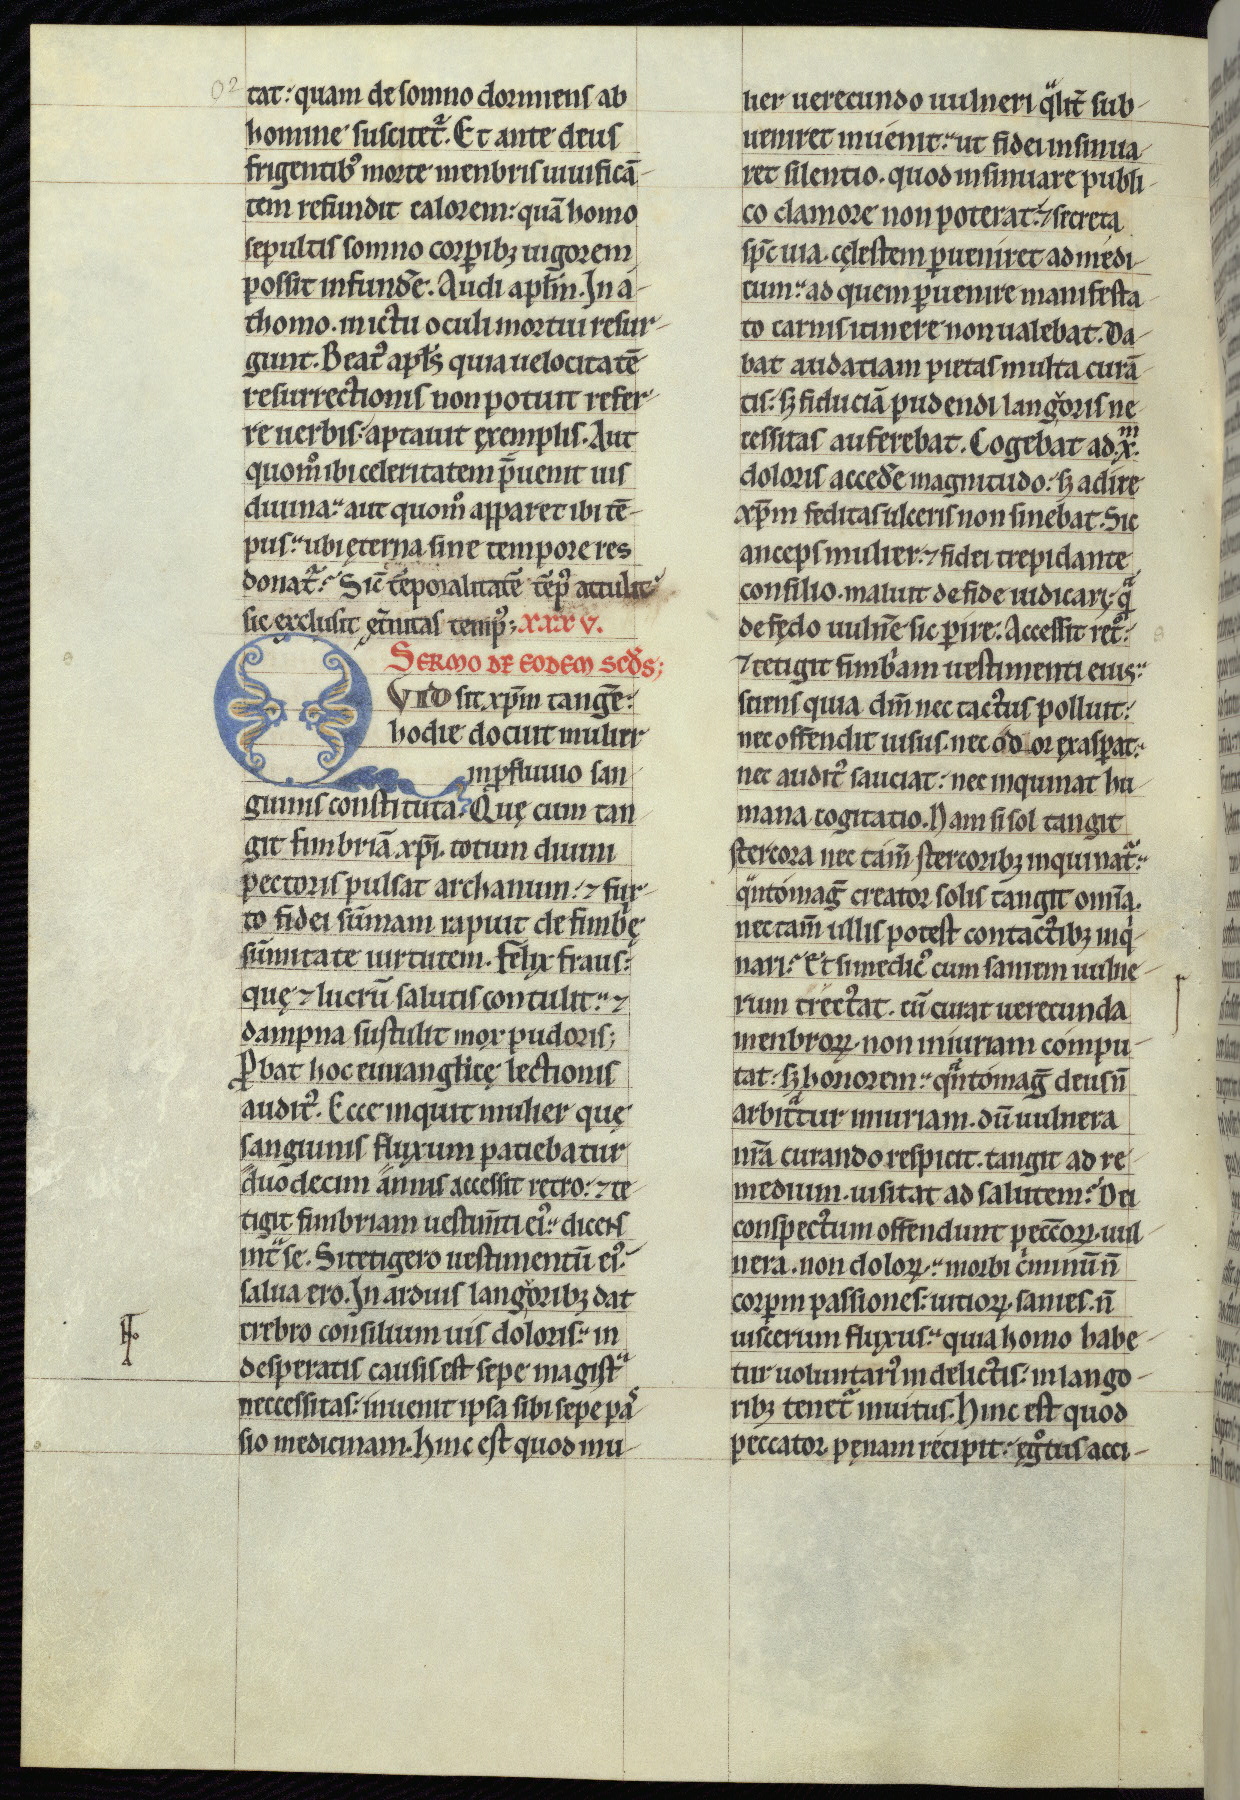 02
tat: quam de somno dormiens ab
homine suscitet᷑. Et ante deus
frigentib⁹ morte menbris uiuificā-
tem refundit calorem: quā homo
sepultis somno corꝑibꝫ uigorem
possit infundē. Audi apl̄m. In a-
thomo. in ictu oculi mortui resur-
gunt. Beat⁹ apl̄s quia uelocitatē
resurrectionis non potuit refer-
re uerbis: aptauit exemplis. Aut
quom̊ ibi celeritatem p̄uenit uis
diuina: aut quom̊ apparet ibi tē-
pus: ubi ęterna sine tempore res
donat᷑. Sic tēporalitatē tēp⁹ attulit:
sic exclusit ęt̄nitas temp⁹; xxxv.
Sermo de eodem scđs;
QVID sit xp̄m tangē:
hodie docuit mulier
in ꝓfluuio san-
guinis constituta. Quę cum tan-
git fimbriā xp̄i. totum diuini
pectoris pulsat archanum: ⁊ fur-
to fidei sūmam rapuit de fimbrię
sūmitate uirtutem. Felix fraus:
quę ⁊ lucrū salutis contulit: ⁊
dampna sustulit mox pudoris;
Ꝓbat hoc euuanglicę lectionis
audit⁹. Ecce inquit mulier quę
sanguinis fluxum patiebatur
duodecim annis accessit retro: ⁊ te-
tigit fimbriam uestimti ei⁹: dicens
int᷑ se. Si tetigero uestimentū ei⁹:
salua ero. In arduis langoribꝫ dat
crebro consilium uis doloris: in
desperatis causis est sepe magistᵃ
neccessitas: inuenit ipsa sibi sepe pas-
sio medicinam. Hinc est quod mu-
lier uerecundo uulneri qͣlit᷑ sub-
ueniret inuenit: ut fidei insinua-
ret silentio. quod insinuare publi-
co clamore non poterat: ⁊ secreta
sp̄c uia. cęlestem ꝑueniret ad medi-
cum: ad quem ꝑuenire manifesta-
to carnis itinere non ualebat. Da-
bat audatiam pietas multa curā-
tis: sꝫ fiduciā pudendi langoris ne-
cessitas auferebat. Cogebat ad .xᵐ.
doloris accedē magnitudo: sꝫ adire
xp̄m feditas ulceris non sinebat. Sic
anceps mulier: ⁊ fidei trepidante
consilio. maluit de fide iudicari: qͣ
de fędo uulnē sic ꝑire. Accessit retͦ:
⁊ tetigit fimbͥam uestimenti eius:
sciens quia dm̄ nec tactus polluit:
nec offendit uisus. nec odor exasꝑat:
nec audit⁹ sauciat: nec inquinat hu-
mana cogitatio. Nam si sol tangit
stercora nec tam̄ stercoribꝫ inquinat᷑:
qͣntomag̅ creator solis tangit om̄ia.
nec tam̄ ullis potest contactibꝫ inqͥ-
nari. Et si medic⁹ cum saniem uulne-
rum trectat. cū curat uerecunda
menbroꝝ. non iniuriam compu-
tat. sꝫ honorem: qͣntomag̅ deus n̄
arbitᵃtur iniuriam. dū uulnera
nr̄a curando respicit. tangit ad re-
medium. uisitat ad salutem. Dei
conspectum offendunt pecc̄oꝝ uul-
nera. non doloꝝ: morbi cͥminū n̄
corꝑm passiones: uitioꝝ sanies. n̄
uiscerum fluxus: quia homo habe-
tur uoluntari⁹ in delictis: in lango-
ribꝫ tenet᷑ inuitus. Hinc est quod
peccator pęnam recipit: ęgͦtus acci-